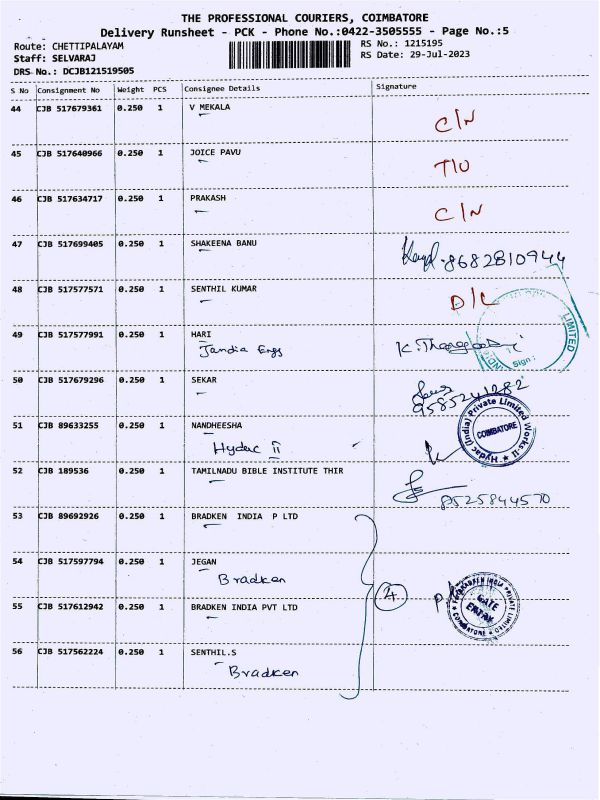 THE PROFESSIONAL COURIERS, COIMBATORE
Delivery Runsheet - PCK - Phone No.:0422-3505555 - Page No.:5
Route: CHETTIPALAYAM
RS No.: 1215195
Staff: SELVARAJ
RS Date: 29-Jul-2023
DRS No.: DCJB121519505
S No Consignment No Weight PCS Consignee Details Signature
44 CJB 517679361 0.250 1 V MEKALA C/N
45 CJB 517640966 0.250 1 JOICE PAVU T/U
46 CJB 517634717 0.250 1 PRAKASH C/N
47 CJB 517699405 0.250 1 SHAKEENA BANU 8682810944
48 CJB 517577571 0.250 1 SENTHIL KUMAR D/L
LIMITED
49 CJB 517577991 0.250 1 HARI
Jandia Engg
Sign:
50 CJB 517679296 0.250 1 SEKAR 9585241282
51 CJB 89633255 0.250 1 NANDHEESHA
Hydac II
Hydac (India) Private Limited Works-II
COIMBATORE
52 CJB 189536 0.250 1 TAMILNADU BIBLE INSTITUTE THIR 8525844570
53 CJB 89692926 0.250 1 BRADKEN INDIA P LTD
54 CJB 517597794 0.250 1 JEGAN
Bradken
4
55 CJB 517612942 0.250 1 BRADKEN INDIA PVT LTD
BRADKEN INDIA PRIVATE LIMITED
GATE
ENTRY
COIMBATORE
56 CJB 517562224 0.250 1 SENTHIL.S
Bradken